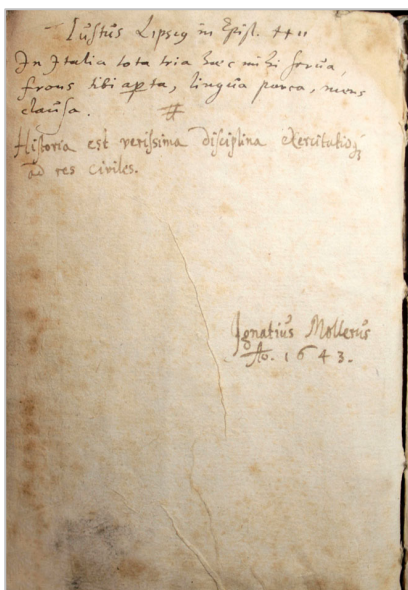 Iustus Lipsius in Epist.
In Italia tota tria haec mihi serua,
frons tibi aperta, lingua parca, mens
clausa. #
Historia est verissima disciplina exercitatioq;
ad res civiles.
Ignatius Mollerus
Ao. 1643.